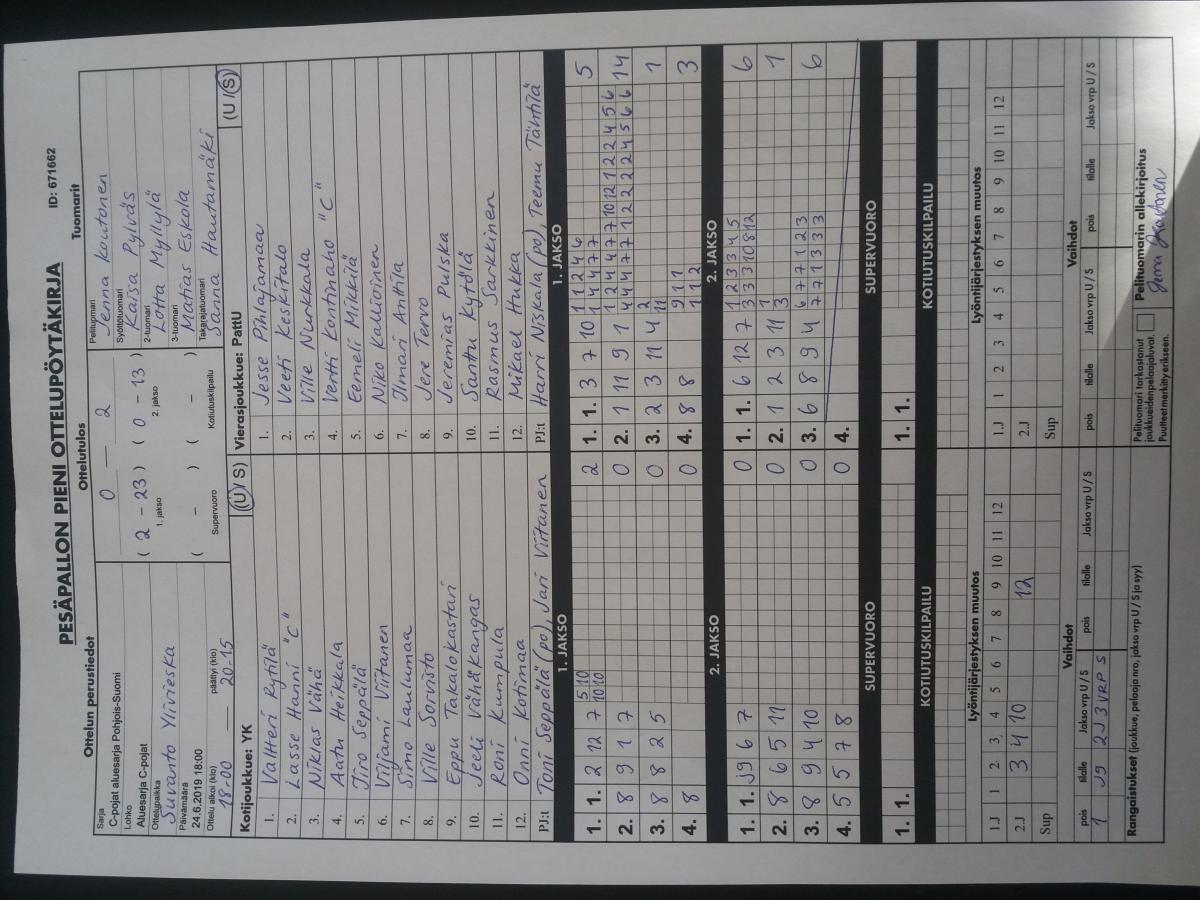 PESÄPALLON PIENI OTTELUPÖYTÄKIRJA
ID: 671662
Ottelun perustiedot
Sarja
C-pojat aluesarja Pohjois-Suomi
Lohko
Aluesarja C-pojat
Ottelupaikka
Suvanto Ylivieska
Päivämäärä
24.6.2019 18:00
Ottelu alkoi (klo) päättyi (klo)
18:00 — 20-15
Ottelutulos
0 — 2
( 2 - 23 ) ( 0 - 13 )
1. jakso 2. jakso
( - ) ( - )
Supervuoro Kotiutuskilpailu
Tuomarit
Pelituomari
Jenna Koutonen
Syöttötuomari
Kaisa Pylväs
2-tuomari
Lotta Myllylä
3-tuomari
Matias Eskola
Takarajatuomari
Sanna Hautamäki
Kotijoukkue: YK (U / S)
1. Valtteri Rytilä
2. Lasse Hanni "C"
3. Niklas Vähä
4. Aatu Heikkala
5. Tiro Seppälä
6. Viljami Viitanen
7. Simo Laulumaa
8. Ville Sorvisto
9. Eppu Takalokastari
10. Jeeli Vähäkangas
11. Roni Kumpula
12. Onni Kotimaa
PJ:t Toni Seppälä (po), Jari Viitanen
Vierasjoukkue: Pattu (U / S)
1. Jesse Pihlajamaa
2. Veeti Keskitalo
3. Ville Nurkkala
4. Vertti Kontinaho "C"
5. Eemeli Mikkilä
6. Niko Kalliorinen
7. Ilmari Anttila
8. Jere Tervo
9. Jeremias Pulska
10. Santtu Kytölä
11. Rasmus Sarkkinen
12. Mikael Hukka
PJ:t Harri Niskala (po), Teemu Tähtilä
1. JAKSO
1. 1. 2 12 7 5 10 2
10 10
2. 8 9 1 7 0
3. 8 8 2 5 0
4. 8 0
2. JAKSO
1. 1. J9 6 7 0
2. 8 6 5 11 0
3. 8 9 4 10 0
4. 5 5 7 8 0
SUPERVUORO
1. 1.
KOTIUTUSKILPAILU
1. JAKSO
1. 1. 3 7 10 1 1 2 4 6 5
1 4 4 7 7
2. 1 11 9 1 1 2 4 4 7 7 10 12 1 2 2 4 5 6 14
4 4 4 7 7 1 2 2 2 2 4 5 6 6
3. 2 3 11 4 2 1
11
4. 8 8 9 1 1 3
1 1 2
2. JAKSO
1. 1. 6 12 7 1 2 3 3 4 5 6
3 3 3 10 8 12
2. 1 2 3 11 1 1
3
3. 6 8 9 4 6 7 7 1 2 3 6
7 7 1 3 3 3
4.
SUPERVUORO
1. 1.
KOTIUTUSKILPAILU
Lyöntijärjestyksen muutos
1.J 1 2 3 4 5 6 7 8 9 10 11 12
2.J 3 4 10 12
Sup
Vaihdot
pois tilalle Jakso vrp U / S pois tilalle Jakso vrp U / S
1 J9 2J 3VRP S
Lyöntijärjestyksen muutos
1.J 1 2 3 4 5 6 7 8 9 10 11 12
2.J
Sup
Vaihdot
pois tilalle Jakso vrp U / S pois tilalle Jakso vrp U / S
Rangaistukset (joukkue, pelaaja nro, jakso vrp U / S ja syy)
Pelituomari tarkastanut
joukkueiden pelaajaluvat.
Puutteet merkitty erikseen.
Pelituomarin allekirjoitus
Jenna Koutonen